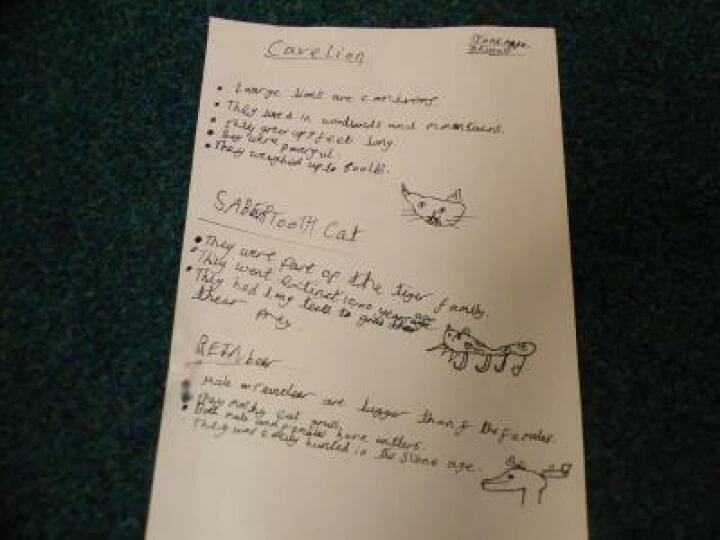 Cave lion
Stone age
animals
• Large lions are carnivores
• They lived in woodlands and mountains.
• They grew up 7 feet long.
• They were powerful.
• They weighed up to
SABERTOOTH Cat
• They were part of the tiger family.
• They went Extinct years ago
• They had long teeth to
thear prey
REINDeer
Male reindeer are bigger than the females.
• They mostly eat grass.
• Both male and females have antlers.
• They was hunted in the Stone age.